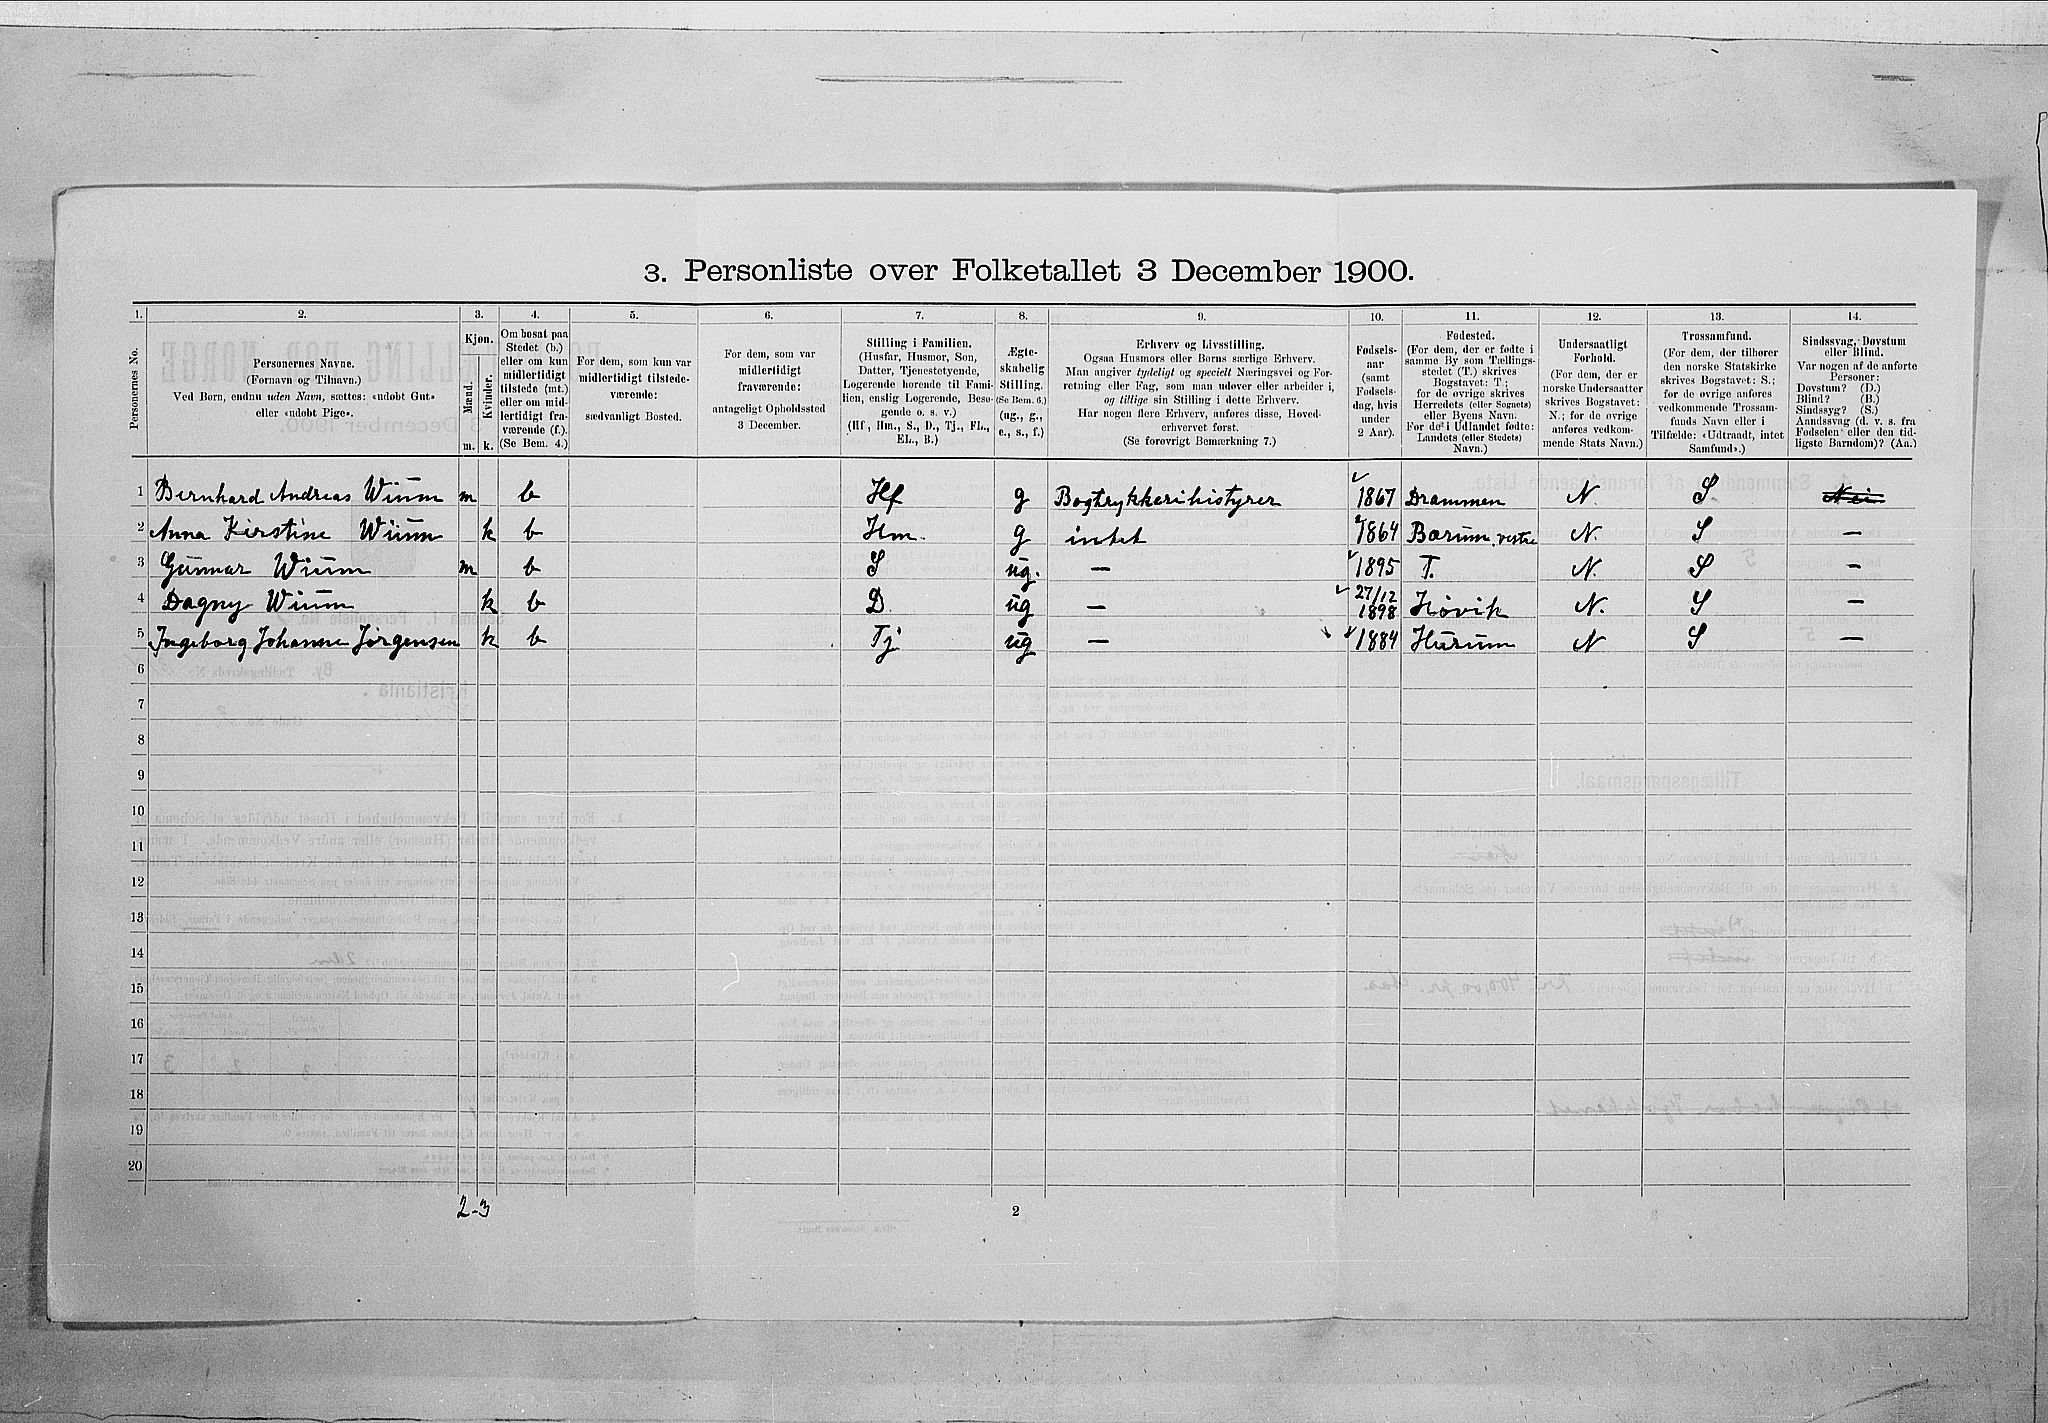 3. Personliste over Folketallet 3 December 1900.
1. 2. 3. 4. 5. 6. 7. 8. 9. 10. 11. 12. 13. 14.
Personernes No.
Personernes Navne.
(Fornavn og Tilnavn.)
Ved Børn, endnu uden Navn, sættes: «udøbt Gut»
eller «udøbt Pige».
Kjøn.
Mænd.
Kvinder.
m. k.
Om bosat paa
Stedet (b.)
eller om kun
midlertidigt
tilstede (mt.)
eller om mid-
lertidigt fra-
værende (f.).
(Se Bem. 4.)
For dem, som kun var
midlertidigt tilstede-
værende:
sædvanligt Bosted.
For dem, som var
midlertidigt
fraværende:
antageligt Opholdssted
3 December.
Stilling i Familien.
(Husfar, Husmor, Søn,
Datter, Tjenestetyende,
Logerende hørende til Fami-
lien, enslig Logerende, Besø-
gende o. s. v.)
(Hf., Hm., S., D., Tj., FL.,
EL., B.)
Ægte-
skabelig
Stilling.
(Se Bem. 6.)
(ug., g.,
e., s., f.)
Erhverv og Livsstilling.
Ogsaa Husmors eller Børns særlige Erhverv.
Man angiver tydeligt og specielt Næringsvei og For-
retning eller Fag, som man udøver eller arbeider i,
og tillige sin Stilling i dette Erhverv.
Har nogen flere Erhverv, anføres disse, Hoved-
erhvervet først.
(Se forøvrigt Bemærkning 7.)
Fødsels-
aar
(samt
Fødsels-
dag, hvis
under
2 Aar).
Fødested.
(For dem, der er fødte i
samme By som Tællings-
stedet (T.) skrives
Bogstavet: T.;
for de øvrige skrives
Herredets (eller Sognets)
eller Byens Navn.
For de i Udlandet fødte:
Landets (eller Stedets)
Navn.)
Undersaatligt
Forhold.
(For dem, der er
norske Undersaatter
skrives Bogstavet:
N.; for de øvrige
anføres vedkom-
mende Stats Navn.)
Trossamfund.
(For dem, der tilhører
den norske Statskirke
skrives Bogstavet: S.;
for de øvrige anføres
vedkommende Trossam-
funds Navn eller i
Tilfælde: «Udtraadt, intet
Samfund».)
Sindssvag, Døvstum
eller Blind.
Var nogen af de anførte
Personer:
Døvstum? (D.)
Blind? (B.)
Sindssyg? (S.)
Aandssvag (d. v. s. fra
Fødselen eller den tid-
ligste Barndom)? (Aa.)
1 Bernhard Andreas Wium m b Hf g Bogtrykkeribistyrer 1867 Drammen N. S Nei
2 Anna Kirstine Wium k b Hm. g intet 1864 Bærum, vestre N. S —
3 Gunnar Wium m b S ug. — 1895 T. N. S —
4 Dagny Wium k b D. ug — 27/12 1898 Høvik N. S —
5 Ingeborg Johanne Jørgensen k b Tj ug — 1884 Hurum N S —
6
7
8
9
10
11
12
13
14
15
16
17
18
19
20
2-3
2